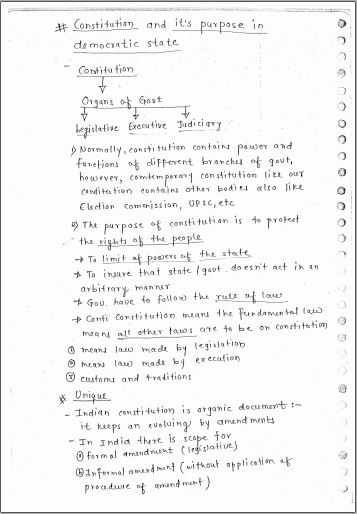 # Constitution and it's purpose in
democratic state
- Constitution
Organs of Govt
Legislative Executive Judiciary
1) Normally, constitution contains power and
functions of different branches of govt,
however, contemporary constitution like our
constitution contains other bodies also like
Election commission, UPSC, etc
2) The purpose of constitution is to protect
the rights of the people
→ To limit of powers of the state
→ To insure that state/govt. doesn't act in an
arbitrary manner
→ Gov. have to follow the rule of law
→ Conti Constitution means the fundamental law
means all other laws are to be on constitution
① means law made by legislation
② means law made by execution
③ customs and traditions
# Unique
- Indian constitution is organic document :-
it keeps an evolving by amendments
- In India there is scope for
ⓐ formal amendment (legislative)
ⓑ Informal amendment (without application of
procedure of amendment)